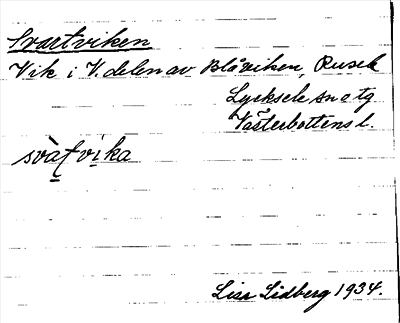 Svartviken
Vik i V. delen av Blåviken, Rusele
Lycksele sn o tg
Västerbottens l.
svàtvika
Lisa Lidberg 1934.